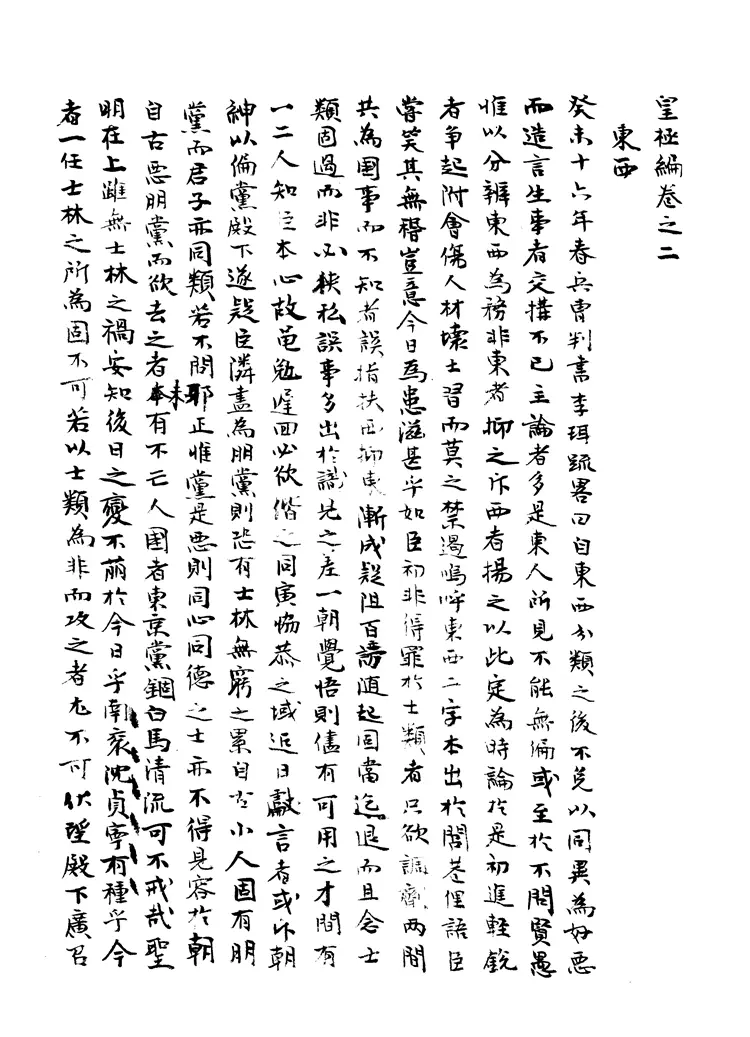 皇極編卷之二
東西
癸未十六年春兵曹判書李珥疏畧曰自東西分類之後不免以同異為好惡
而造言生事者交搆不已主論者多是東人所見不能無偏或至於不問賢愚
惟以分辨東西為務非東者抑之斥西者揚之以此定為時論於是初進輕銳
者爭起附會傷人材壞士習而莫之禁遏嗚呼東西二字本出於閭巷俚語臣
嘗笑其無稽豈意今日為患滋甚乎如臣初非得罪於士類者只欲調劑兩間
共為国事而不知者誤指扶西抑東漸成疑阻百謗随起固當迄退而且念士
類固過而非必挾私誤事多出於識見之差一朝覺悟則儘有可用之才間有
一二人知臣本心故黽勉遲回必欲偕之同寅恊恭之域近日獻言者或斥朝
紳以偏黨殿下遂疑臣隣盡為朋黨則恐有士林無窮之累自古小人固有朋
黨而君子亦同類若不問耶正惟黨是惡則同心同德之士亦不得見容於朝
自古惡朋黨而欲去之者未有不亡人国者東京黨錮白馬清流可不戒哉聖
明在上雖無士林之禍安知後日之變不萠於今日乎南衮沈貞寧有種乎今
者一任士林之所為固不可若以士類為非而攻之者尤不可伏望殿下廣召